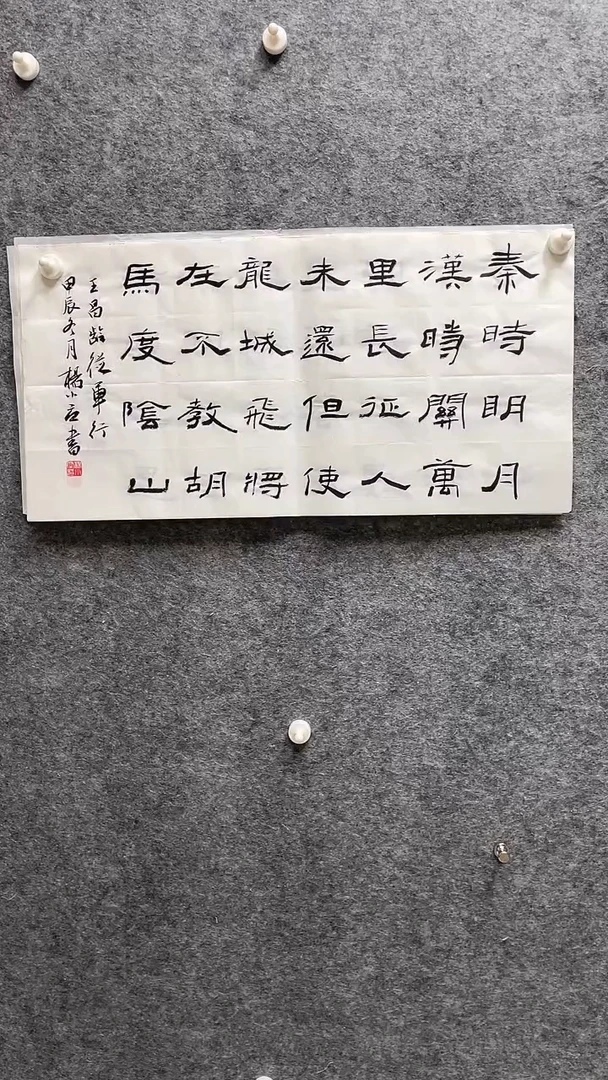 秦時明月
漢時關萬
里長征人
未還但使
龍城飛將
在不教胡
馬度陰山
王昌齡從軍行
甲辰冬月楊小言書